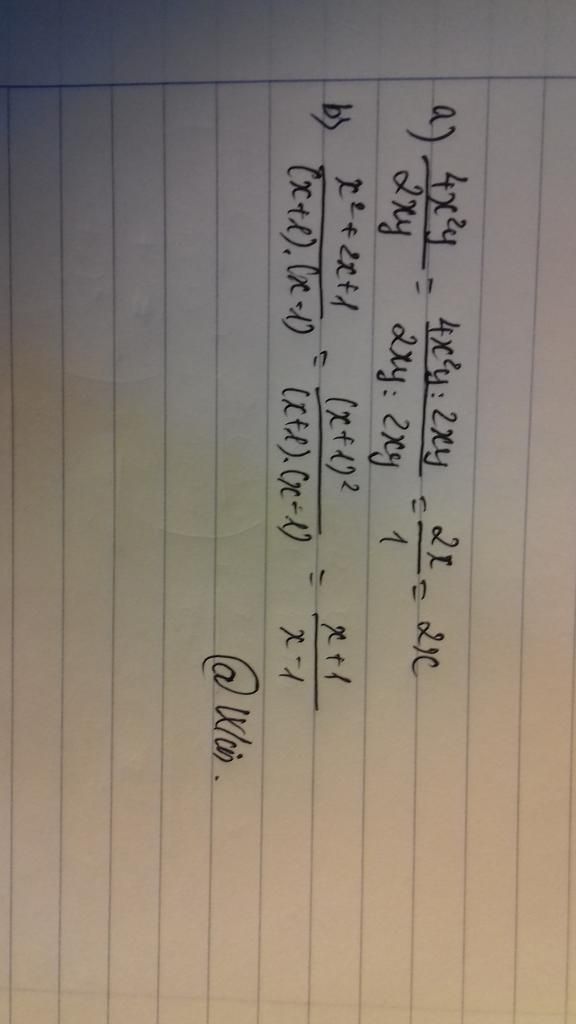 a) 4x²y/2xy = 4x²y : 2xy/2xy : 2xy = 2x/1 = 2x
b) x² + 2x + 1/(x+1).(x-1) = (x+1)²/(x+1).(x-1) = x+1/x-1